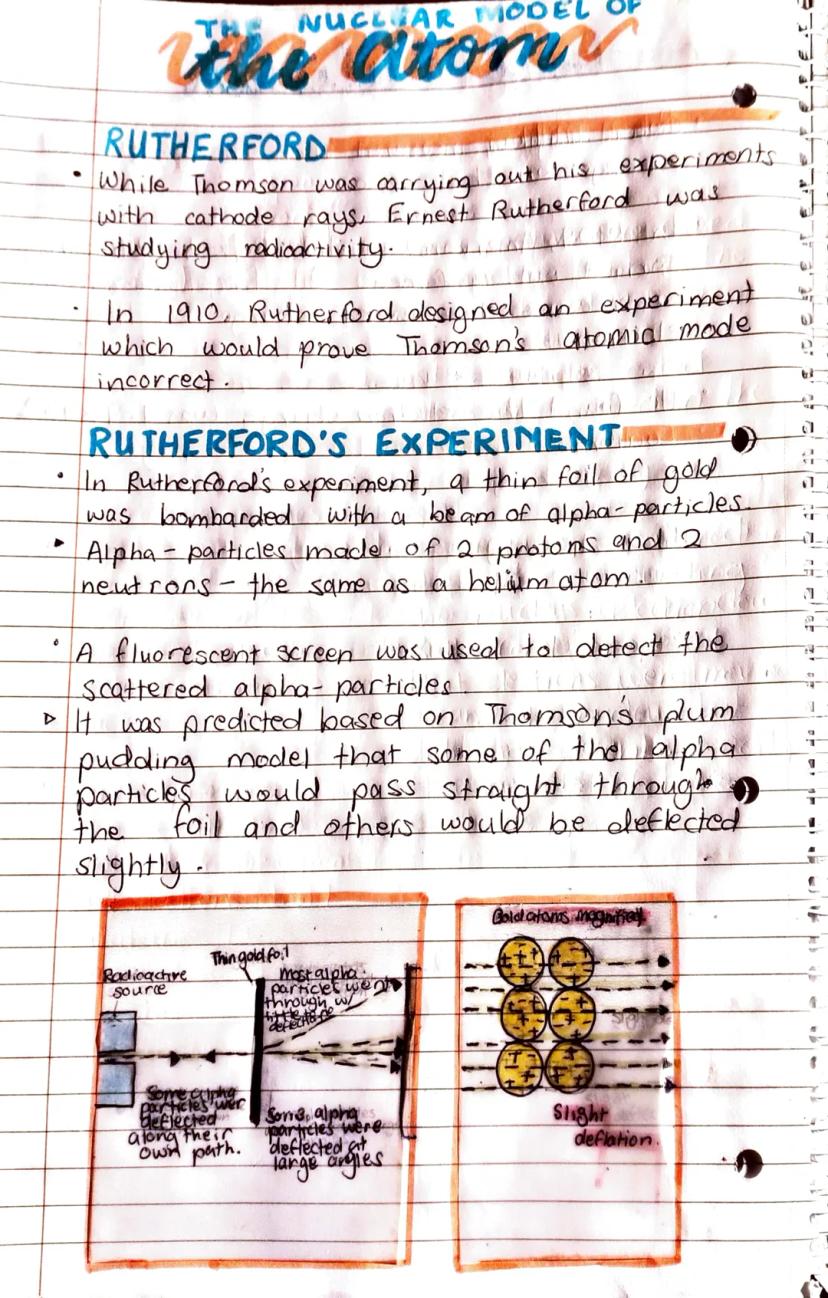 THE NUCLEAR MODEL OF
the atom
RUTHERFORD
• While Thomson was carrying out his experiments
with cathode rays, Ernest Rutherford was
studying radioactivity.
• In 1910, Rutherford designed an experiment
which would prove Thomson's atomia mode
incorrect.
RUTHERFORD'S EXPERIMENT
• In Rutherford's experiment, a thin foil of gold
was bombarded with a beam of alpha-particles.
Alpha-particles made of 2 protons and 2
neutrons - the same as a helium atom.
• A fluorescent screen was used to detect the
scattered alpha-particles.
It was predicted based on Thomson's plum
pudding model that some of the alpha
particles would pass straight through
the foil and others would be deflected
slightly.
Radioactive
source
Thin gold foil
Most alpha
particles went
through w/
little to no
Some alpha
particles wer
deflected
along their
own path.
Some alpha
particles were
deflected at
large angles
Gold atoms magnified
Slight
deflation.